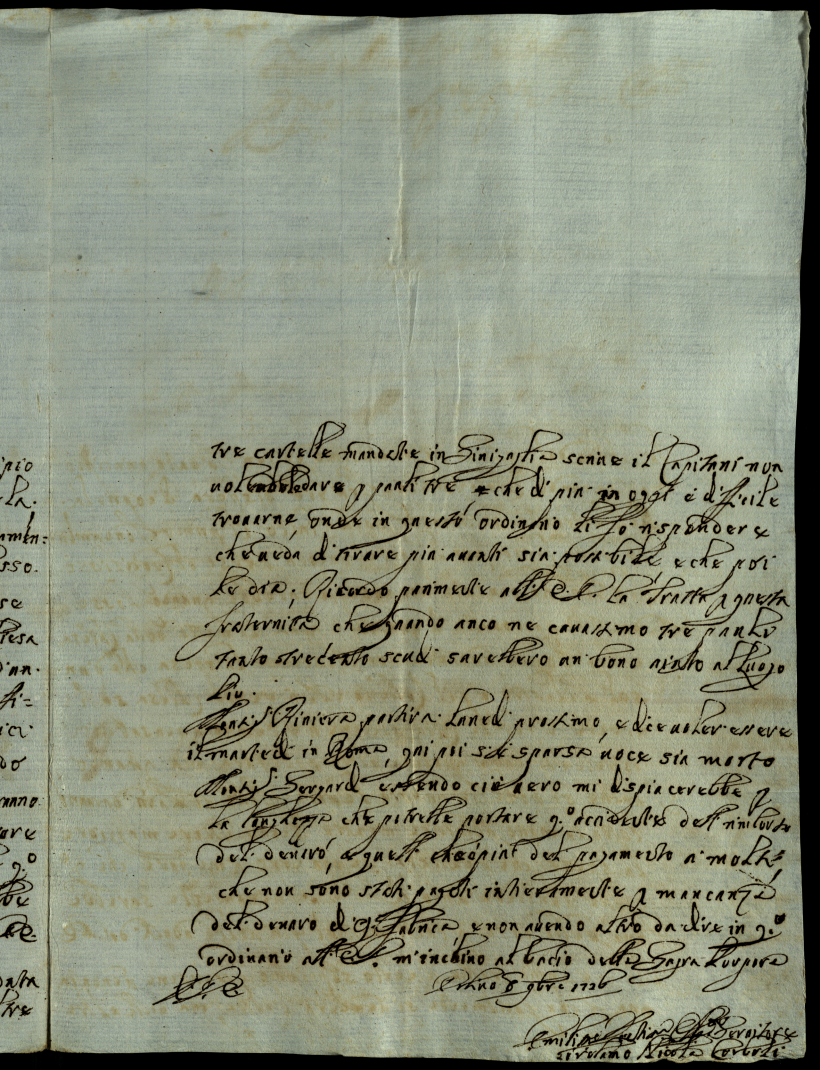 pio
la.
men:
sso.
se
tesa
d'an.
fi=
ici
do
mano
are
q.o
be
data
tre
tre cartelle mandate in Sinigaglia scriue il Capitani non
uol dare p paoli tre e che di più in oggi è dificile
trouarne, onde in questo ordinario li fò rispondere
che ueda di tirare più auanti sia possibile e che poi
le dia; Ricordo parimente all' E. V. la tratta p questa
fraternita che quando anco ne cauassimo tre paoli
tanto trecento scudi sarebbero un bono aiuto al Luogo
Pio.
Monsig.r Riuiera partirà lunedì prossimo, e dice uoler essere
il martedì in Roma, qui poi si è sparsa uoce sia morto
Monsig.r Gergardi essendo ciò uero mi dispiacerebbe p
la lunghezza che potrebbe portare q.o accidente dell'
del denaro, e quelli del pagamento a molti
che non sono stati pagati intieramente p mancanza
del denaro di q. Fabrica, e non auendo altro da dire in q.o
ordinario all' E. V. m'inchino al bacio della Sagra Porpora
Urbino 8 9bre 1726
Seruitore
Girolamo Nicola